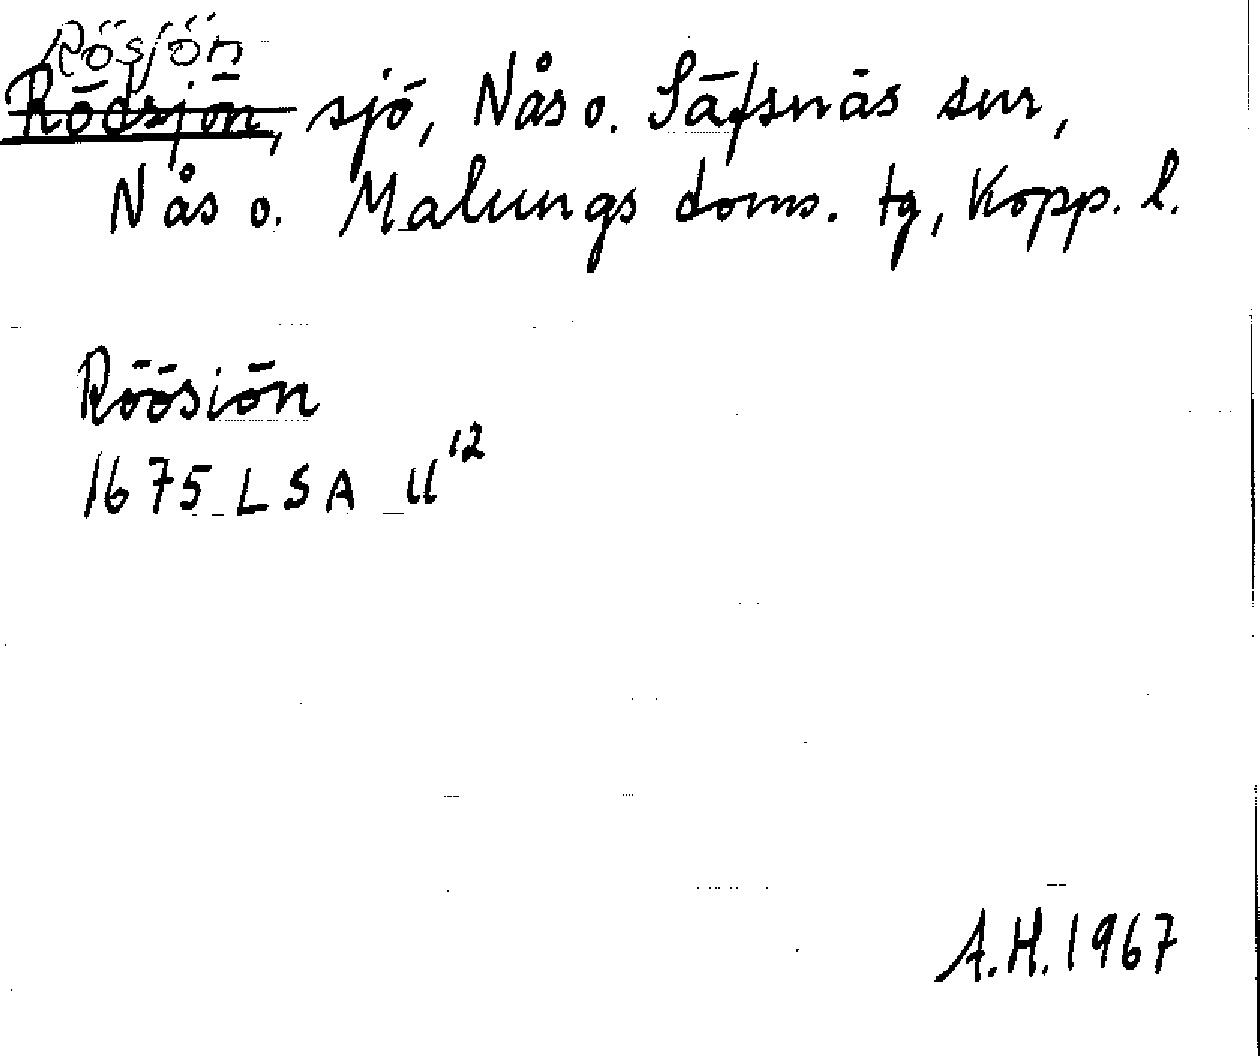 Rösjön
Rödsjön, sjö, Nås o. Säfsnäs snr,
Nås o. Malungs doms. tg, Kopp. l.
Röösiön
1675 LSA U¹²
A.H. 1967